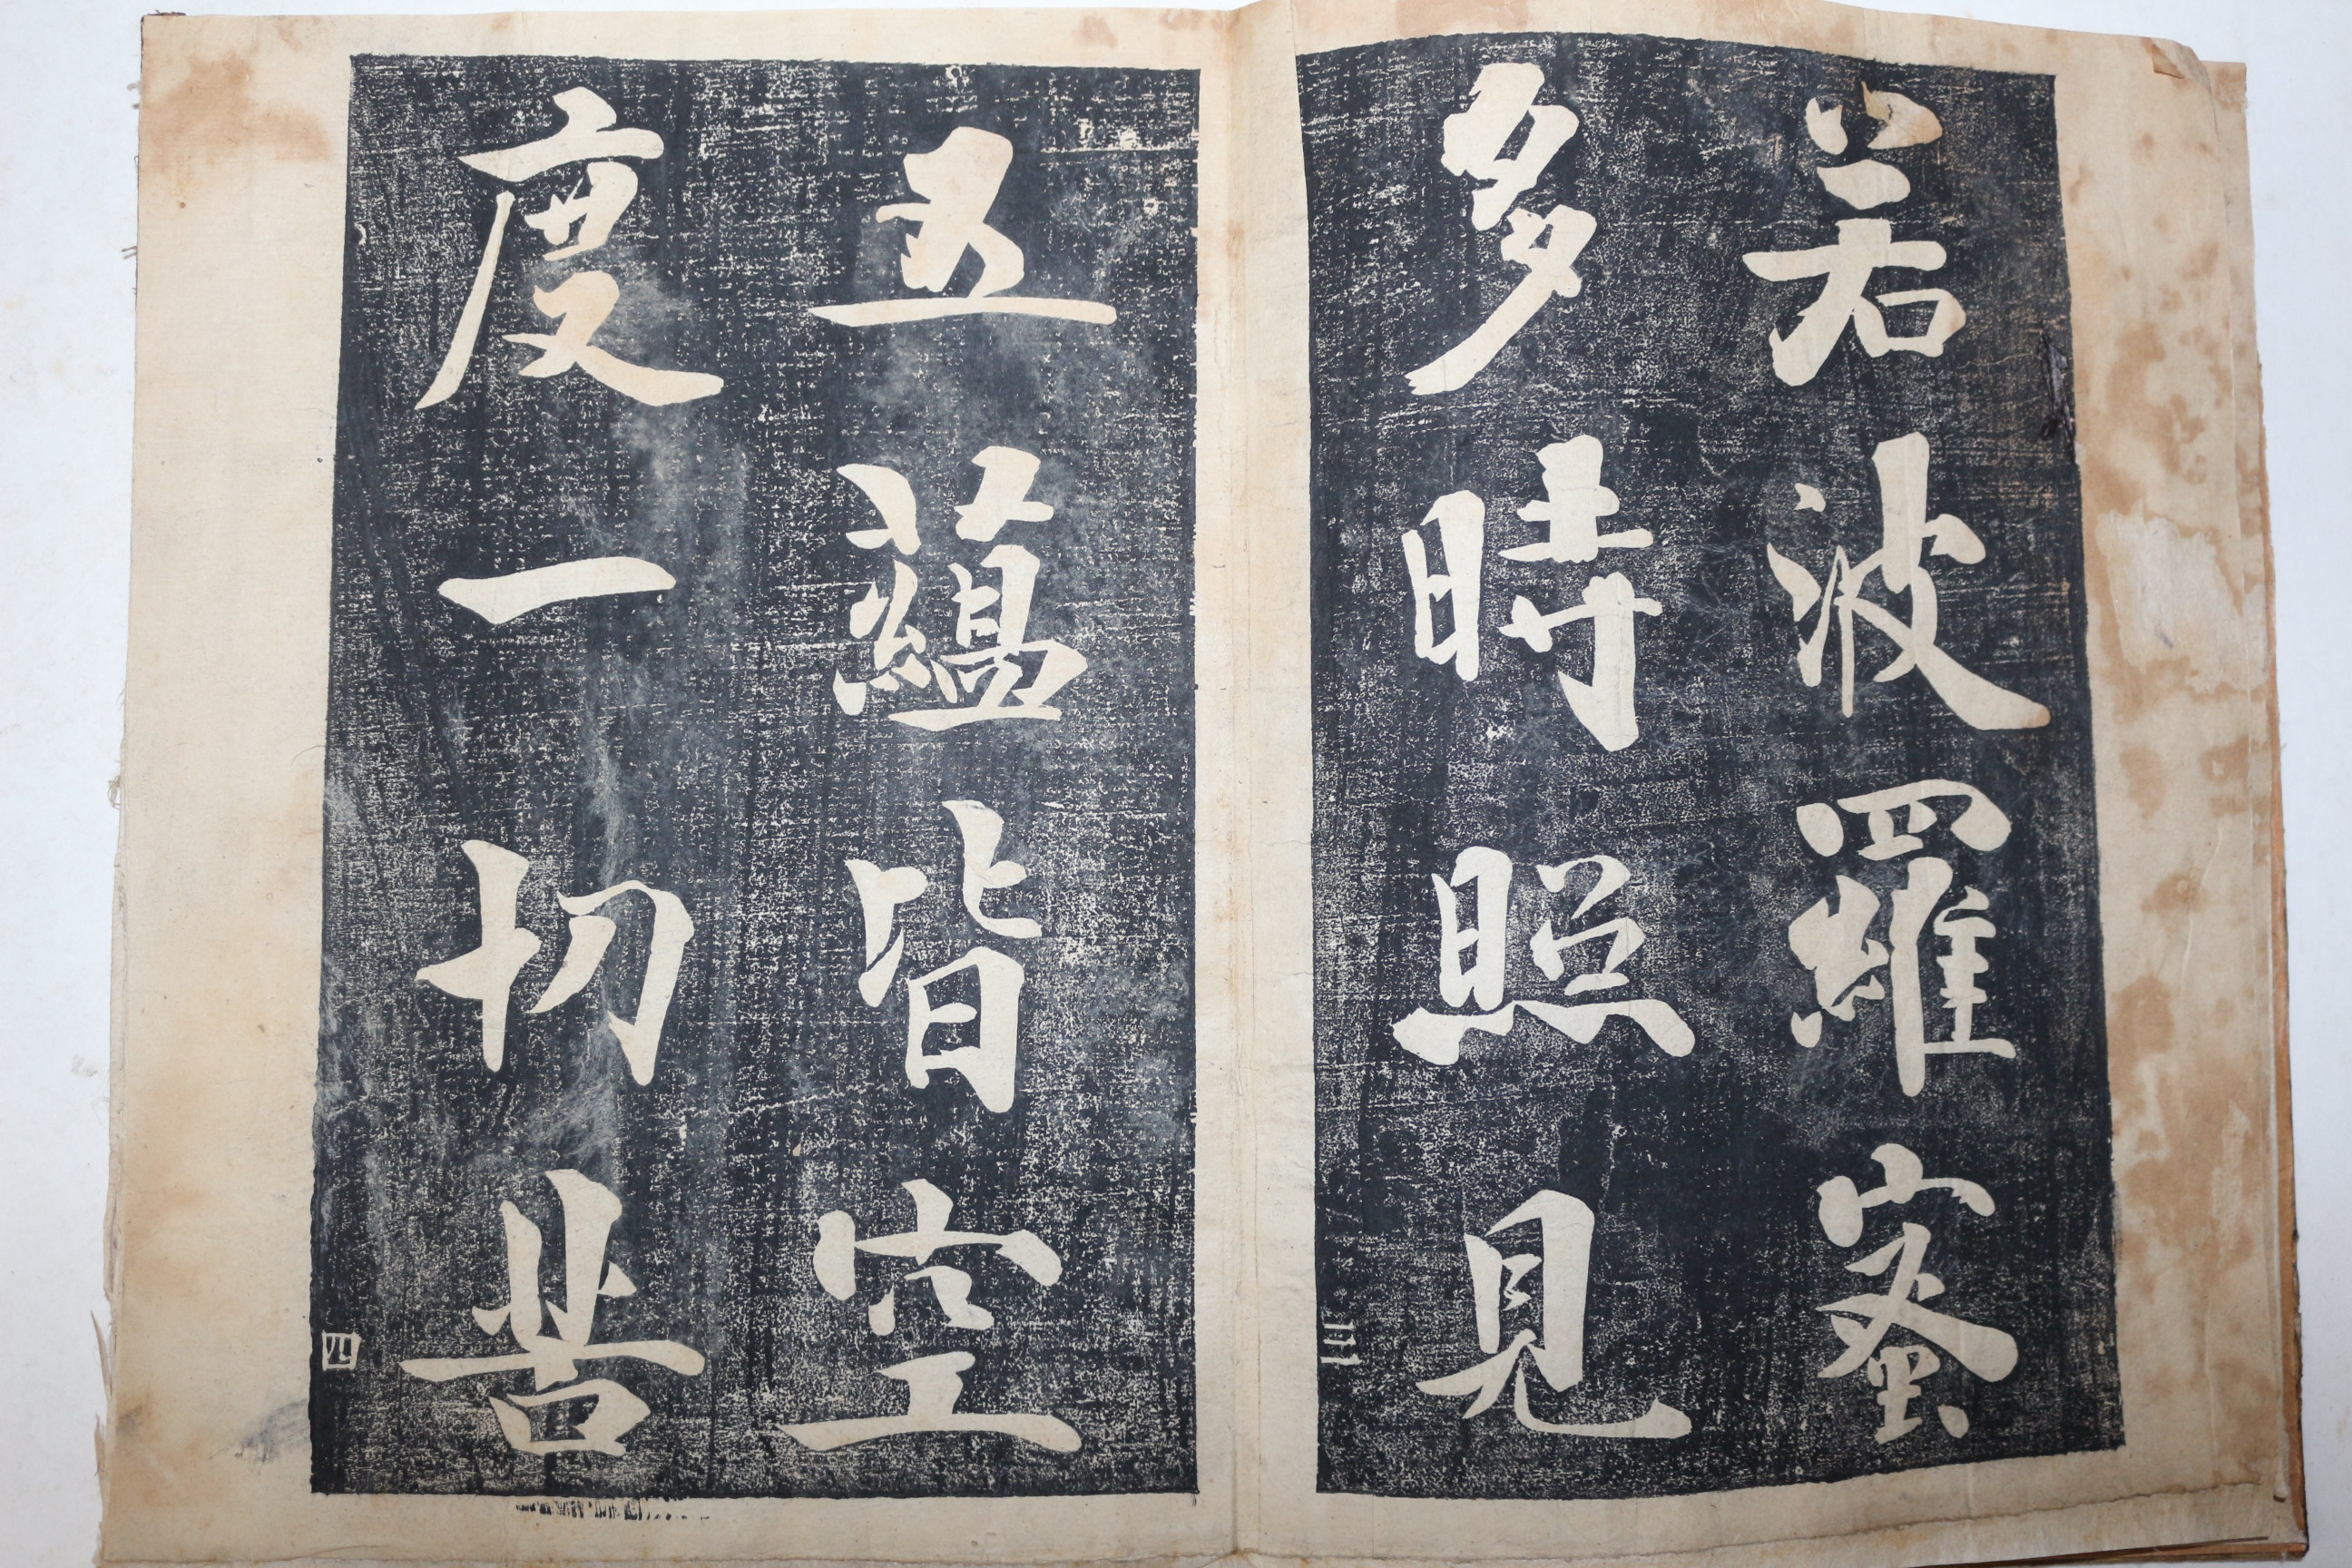 若波羅蜜
多時照見
三
五蘊皆空
度一切苦
四